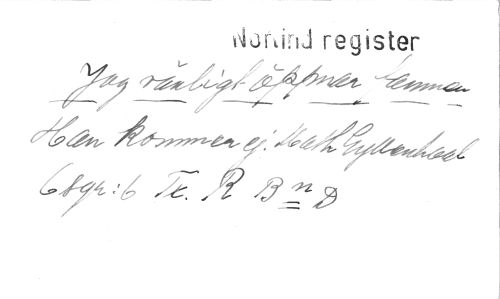 Nordind register
Jag vänligt öppnar famnen
Han kommer ej. Math Gyllenhaal
6 str: 6 Tr. R B n D